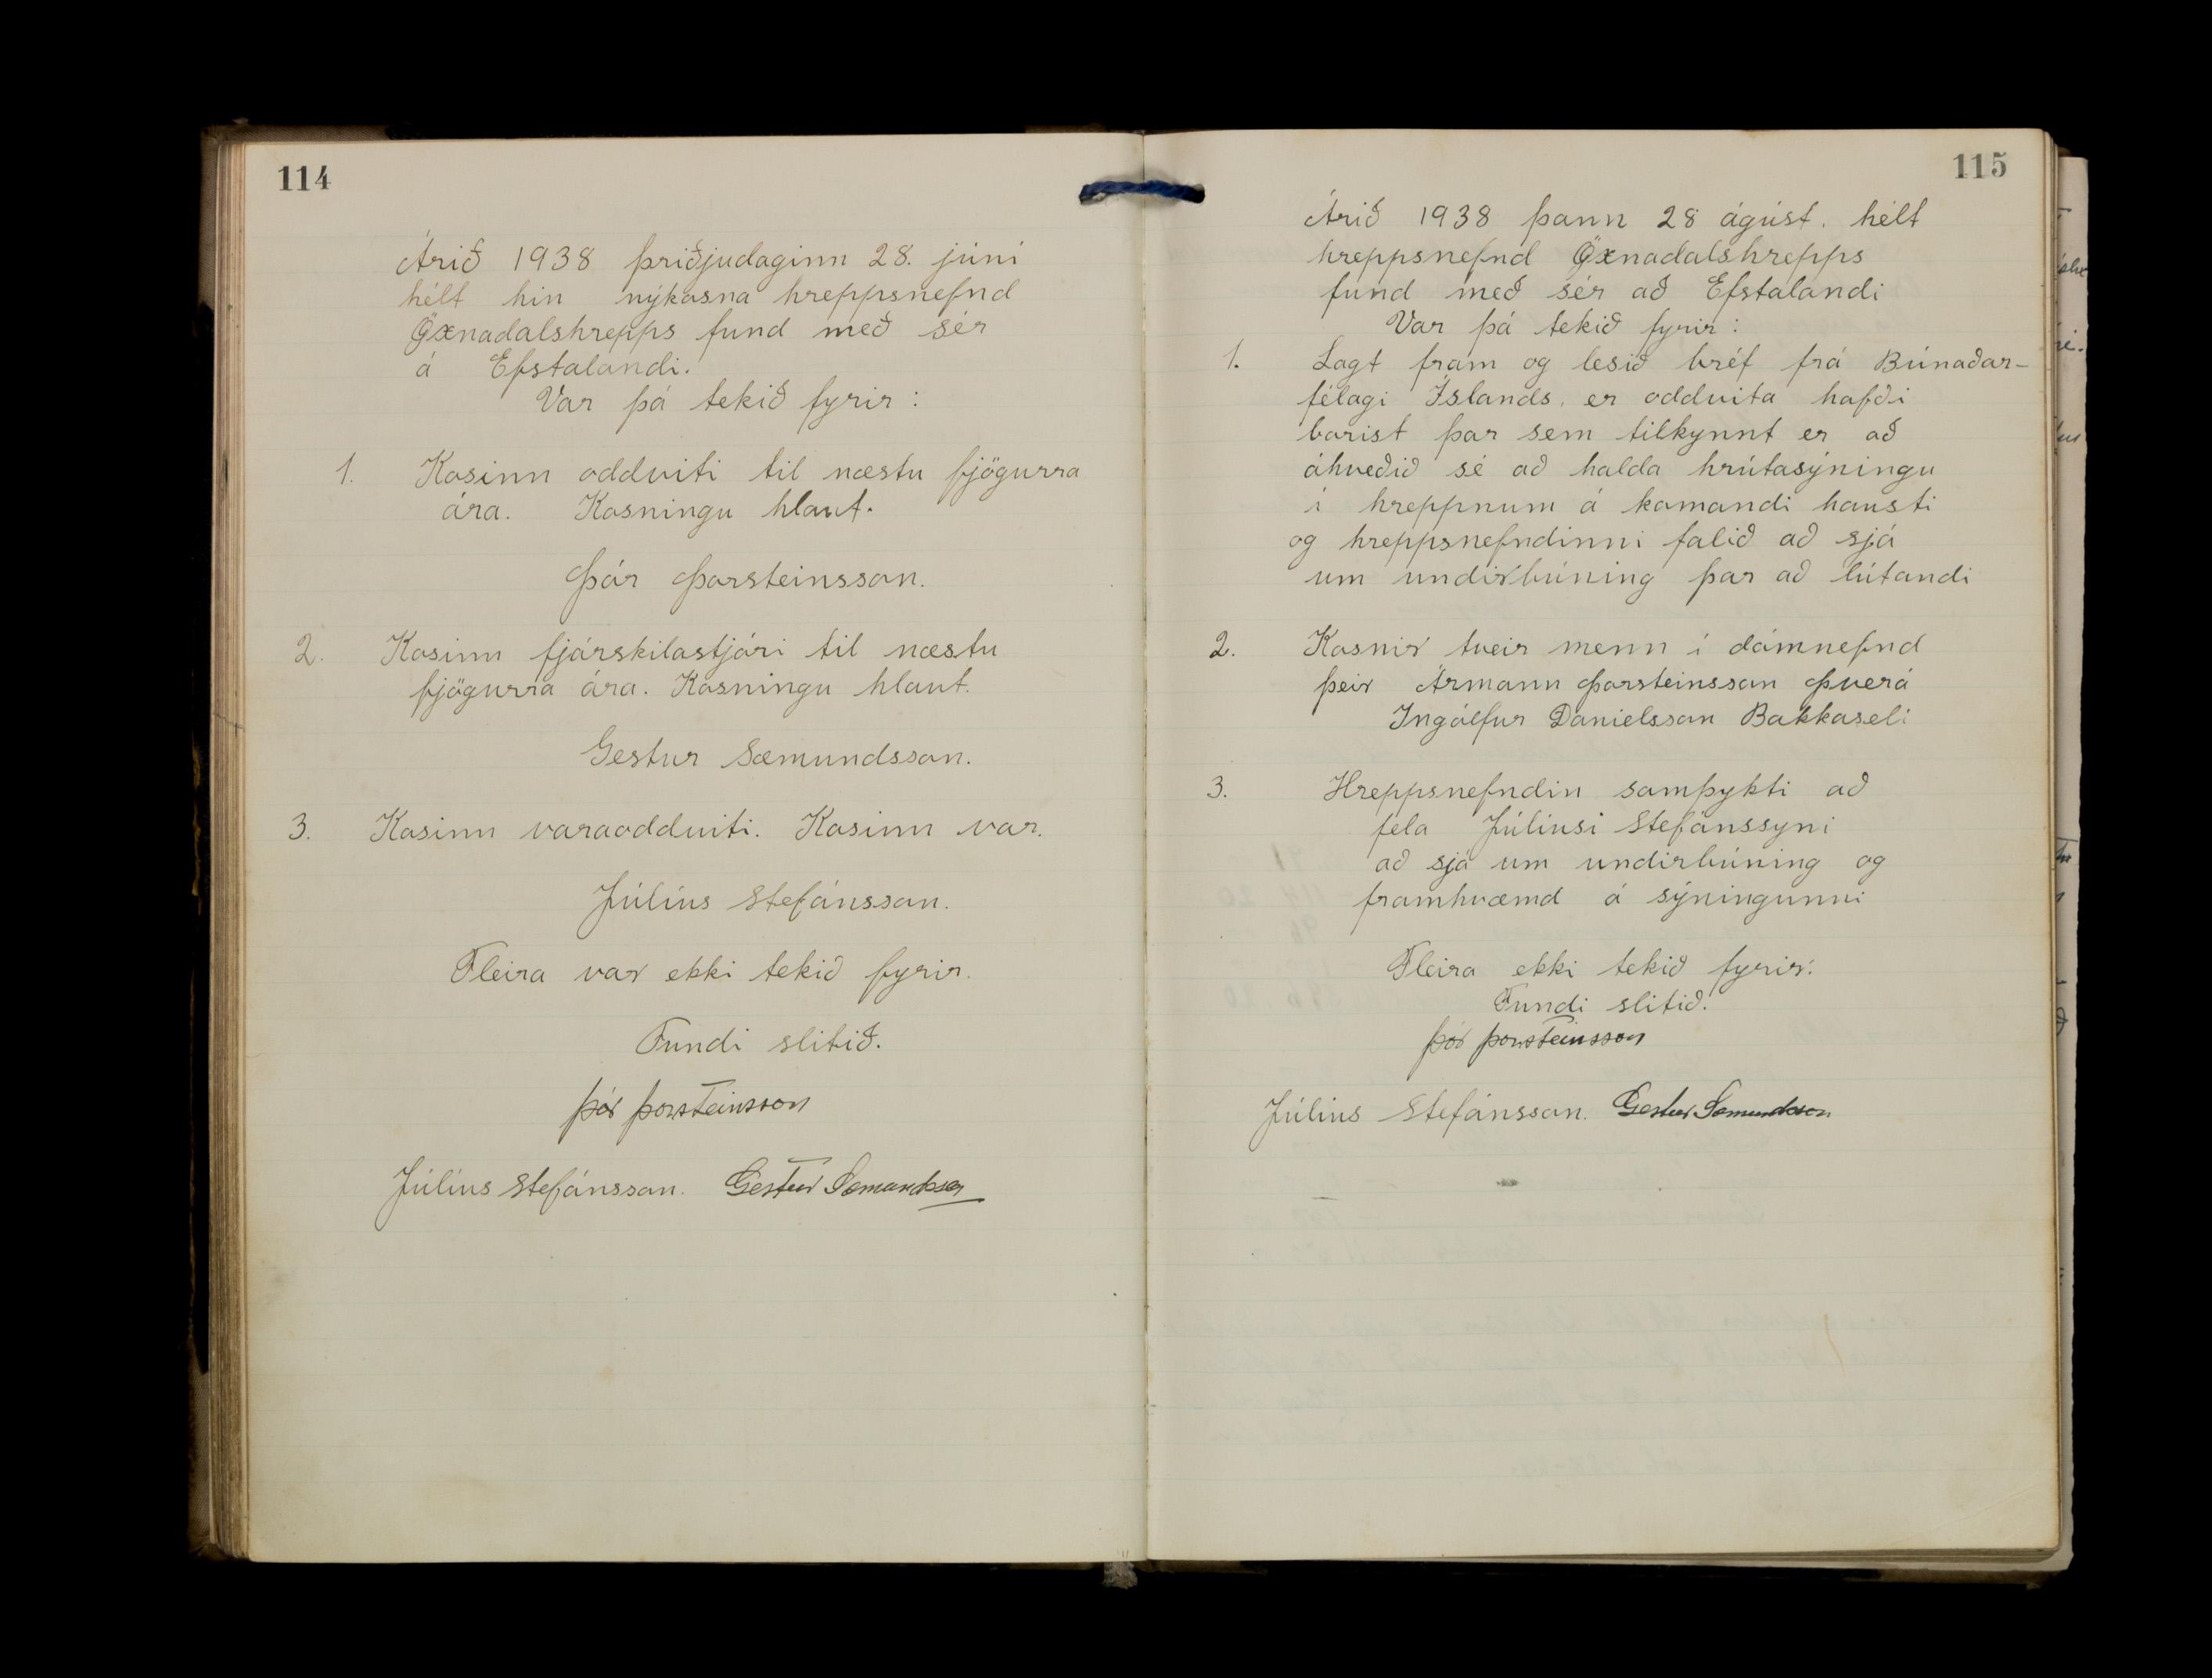 114
Árið 1938 þriðjudaginn 28. júní
hélt hin nýkosna hreppsnefnd
Öxnadalshrepps fund með sér
á Efstalandi.
Var þá tekið fyrir:
1. Kosinn oddviti til næstu fjögurra
ára. Kosningu hlaut.
Þór Þorsteinsson.
2. Kosinn fjárskilastjóri til næstu
fjögurra ára. Kosningu hlaut.
Gestur Sæmundsson.
3. Kosinn varaoddviti. Kosinn var.
Júlíus Stefánsson.
Fleira var ekki tekið fyrir.
Fundi slitið.
Þór Þorsteinsson
Júlíus Stefánsson. Gestur Sæmundsson
115
Árið 1938 þann 28 ágúst. hélt
hreppsnefnd Öxnadalshrepps
fund með sér að Efstalandi
Var þá tekið fyrir:
1. Lagt fram og lesið bréf frá Búnaðar-
félagi Íslands. er oddvita hafði
borist þar sem tilkynnt er að
ákveðið sé að halda hrútasýningu
í hreppnum á komandi hausti
og hreppsnefndinni falið að sjá
um undirbúning þar að lútandi
2. Kosnir tveir menn í dómnefnd
þeir Ármann Þorsteinsson Þverá
Ingólfur Daníelsson Bakkaseli
3. Hreppsnefndin samþykti að
fela Júlíusi Stefánssyni
að sjá um undirbúning og
framkvæmd á sýningunni
Fleira ekki tekið fyrir.
Fundi slitið.
Þór Þorsteinsson
Júlíus Stefánsson. Gestur Sæmundsson